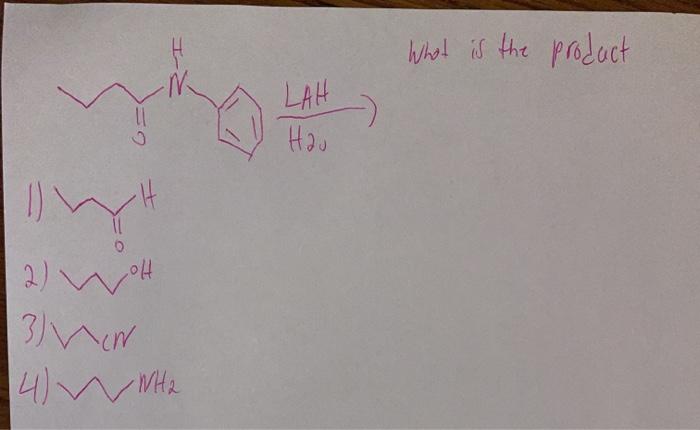 What is the product
H
N
O
LAH
H2O
1) H
O
2) OH
3) CN
4) NH2